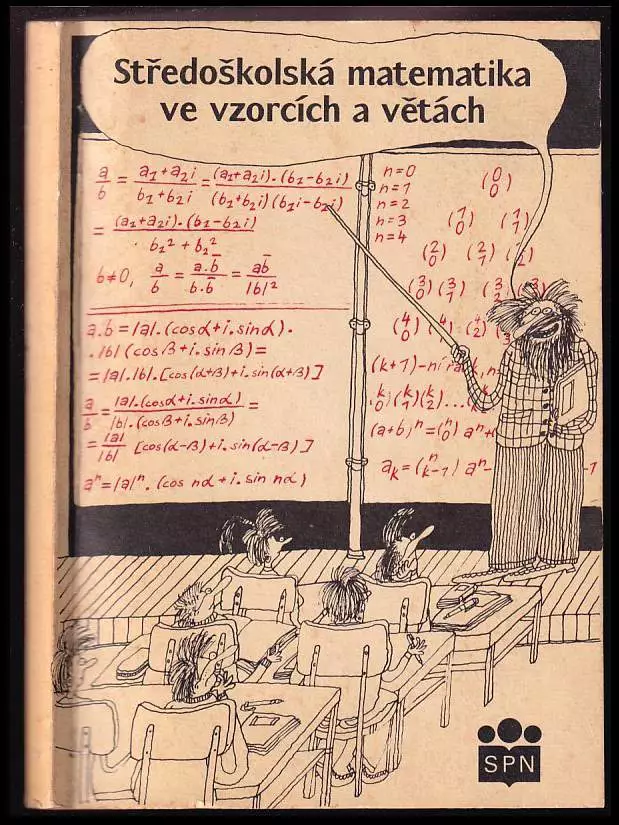 Středoškolská matematika
ve vzorcích a větách
a/b = (a₁+a₂i)/(b₁+b₂i) = (a₁+a₂i).(b₁-b₂i)/(b₁+b₂i)(b₁i-b₂i)
= (a₁+a₂i).(b₁-b₂i)/(b₁²+b₂²)
b≠0, a/b = a.b̄/b.b̄ = ab̄/|b|²
a.b=|a|.(cosα+i.sinα).
.|b|(cosβ+i.sinβ)=
=|a|.|b|.[cos(α+β)+i.sin(α+β)]
a/b = |a|.(cosα+i.sinα)/|b|.(cosβ+i.sinβ) =
= |a|/|b| [cos(α-β)+i.sin(α-β)]
aⁿ=|a|ⁿ.(cos nα+i.sin nα)
n=0 (0 0)
n=1
n=2 (1 0) (1 1)
n=3
n=4 (2 0) (2 1) 2)
(3 0) (3 1) (3 (3
(4 0) (4 1) (4 2) (4 3
(k+1)-ní řá
k 0)(k 1)(k 2)...
(a+b)ⁿ=(n 0) aⁿ+
aₖ=(n k-1) aⁿ⁻ -1
SPN